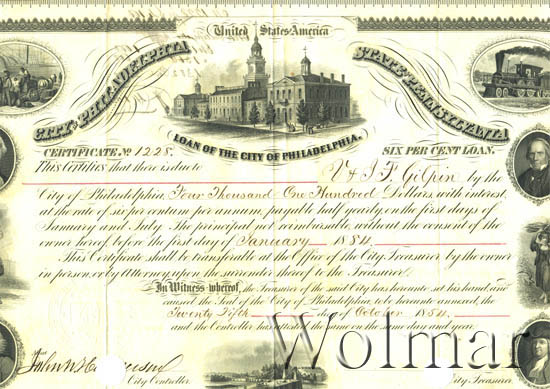 United States America
CITY OF PHILADELPHIA
STATE OF PENNSYLVANIA
LOAN OF THE CITY OF PHILADELPHIA.
CERTIFICATE No 1228.
SIX PER CENT LOAN.
This Certifies that there is due to
V & J. F. Gilpin by the
City of Philadelphia, Four Thousand One Hundred Dollars, with interest,
at the rate of six per centum per annum, payable half yearly on the first days of
January and July. The principal not reimbursable without the consent of the
owner hereof before the first day of January 1884
This Certificate shall be transferable at the Office of the City Treasurer by the owner
in person, or by Attorney upon the surrender hereof to the Treasurer.
In Witness whereof, the Treasurer of the said City has hereunto set his hand, and
caused the Seal of the City of Philadelphia, to be hereunto annexed, the
Twenty Fifth day of October 1854
and the Controller has attested the same on the same day and year.
John N
City Controller.
City Treasurer.
Wolmar